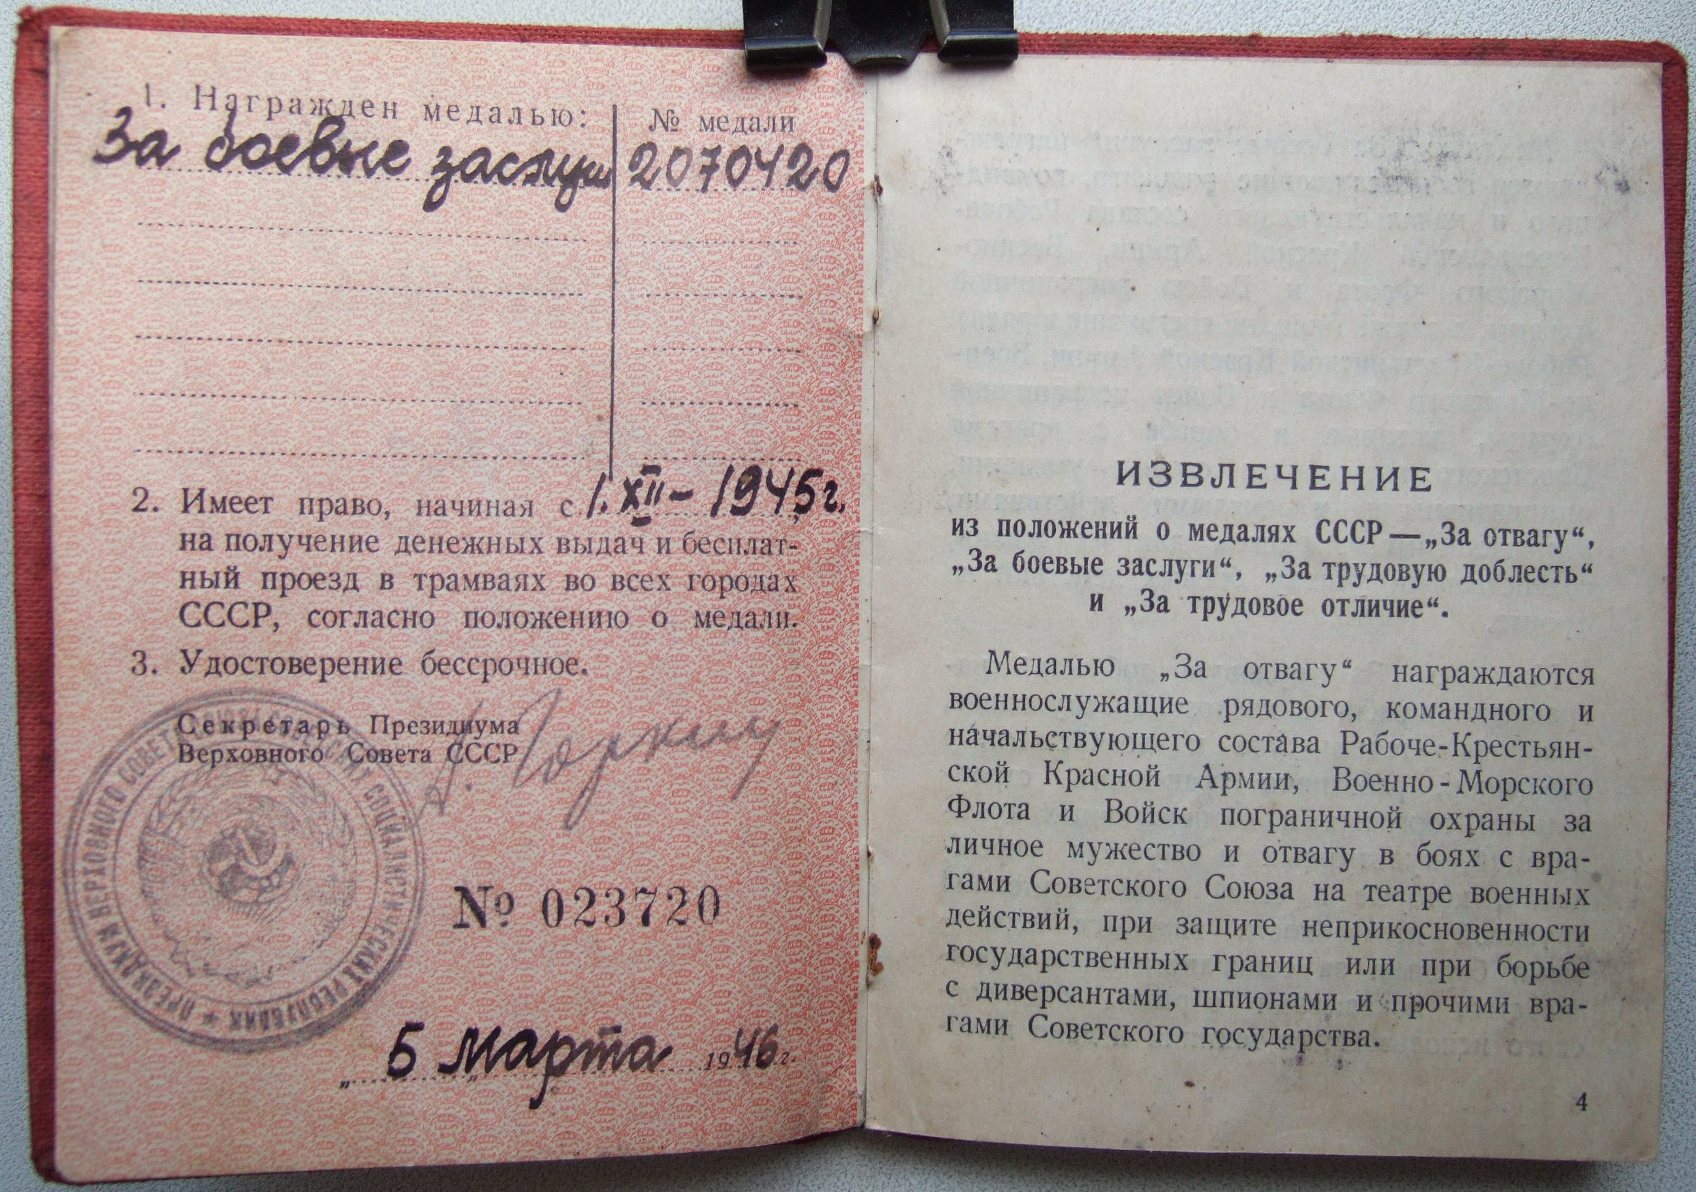 1. Награжден медалью:
№ медали
За боевые заслуги
2070420
2. Имеет право, начиная с 1. XII – 1945 г.
на получение денежных выдач и бесплат-
ный проезд в трамваях во всех городах
СССР, согласно положению о медали.
3. Удостоверение бессрочное.
Секретарь Президиума
Верховного Совета СССР
А. Горкин
ПРЕЗИДИУМ ВЕРХОВНОГО СОВЕТА СОЦИАЛИСТИЧЕСКИХ РЕСПУБЛИК
№ 023720
„ 5 марта 1946 г.
ИЗВЛЕЧЕНИЕ
из положений о медалях СССР — „За отвагу“,
„За боевые заслуги“, „За трудовую доблесть“
и „За трудовое отличие“.
Медалью „За отвагу“ награждаются
военнослужащие рядового, командного и
начальствующего состава Рабоче-Крестьян-
ской Красной Армии, Военно-Морского
Флота и Войск пограничной охраны за
личное мужество и отвагу в боях с вра-
гами Советского Союза на театре военных
действий, при защите неприкосновенности
государственных границ или при борьбе
с диверсантами, шпионами и прочими вра-
гами Советского государства.
4